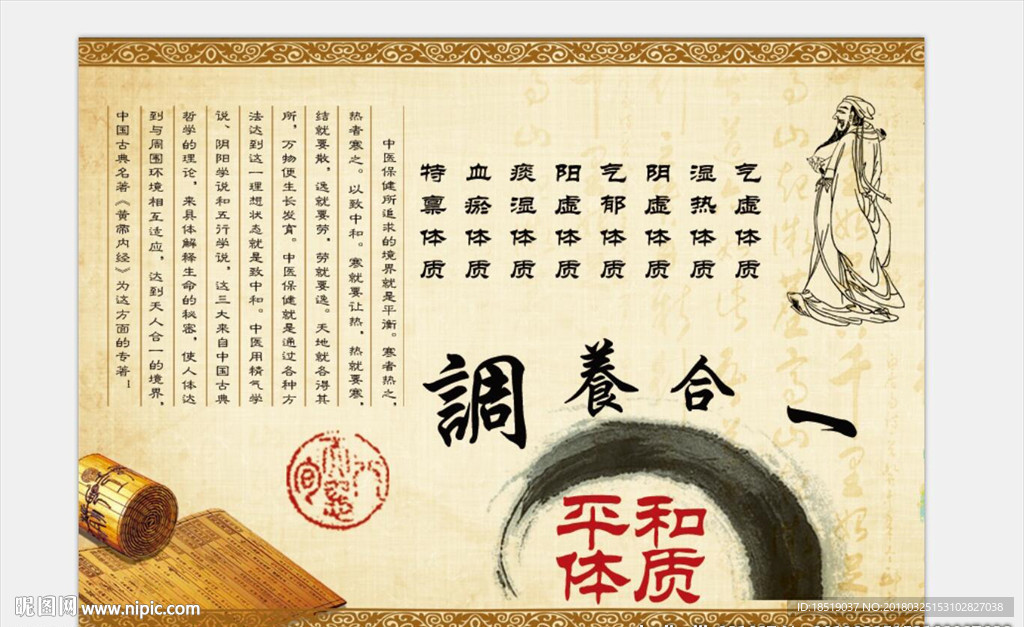 气虚体质
湿热体质
阴虚体质
气郁体质
阳虚体质
痰湿体质
血瘀体质
特禀体质
一合養調
平和
体质
中医保健所追求的境界就是平衡。寒者热之，
热者寒之。以致中和。寒就要让热，热就要寒，
结就要散，逸就要劳，劳就要逸。天地就各得其
所，万物便生长发育。中医保健就是通过各种方
法达到这一理想状态就是致中和。中医用精气学
说、阴阳学说和五行学说，这三大来自中国古典
哲学的理论，来具体解释生命的秘密，使人体达
到与周围环境相互适应，达到天人合一的境界，
中国古典名著《黄帝内经》为这方面的专著！
昵图网 www.nipic.com
ID:18519037 NO:20180325153102827038